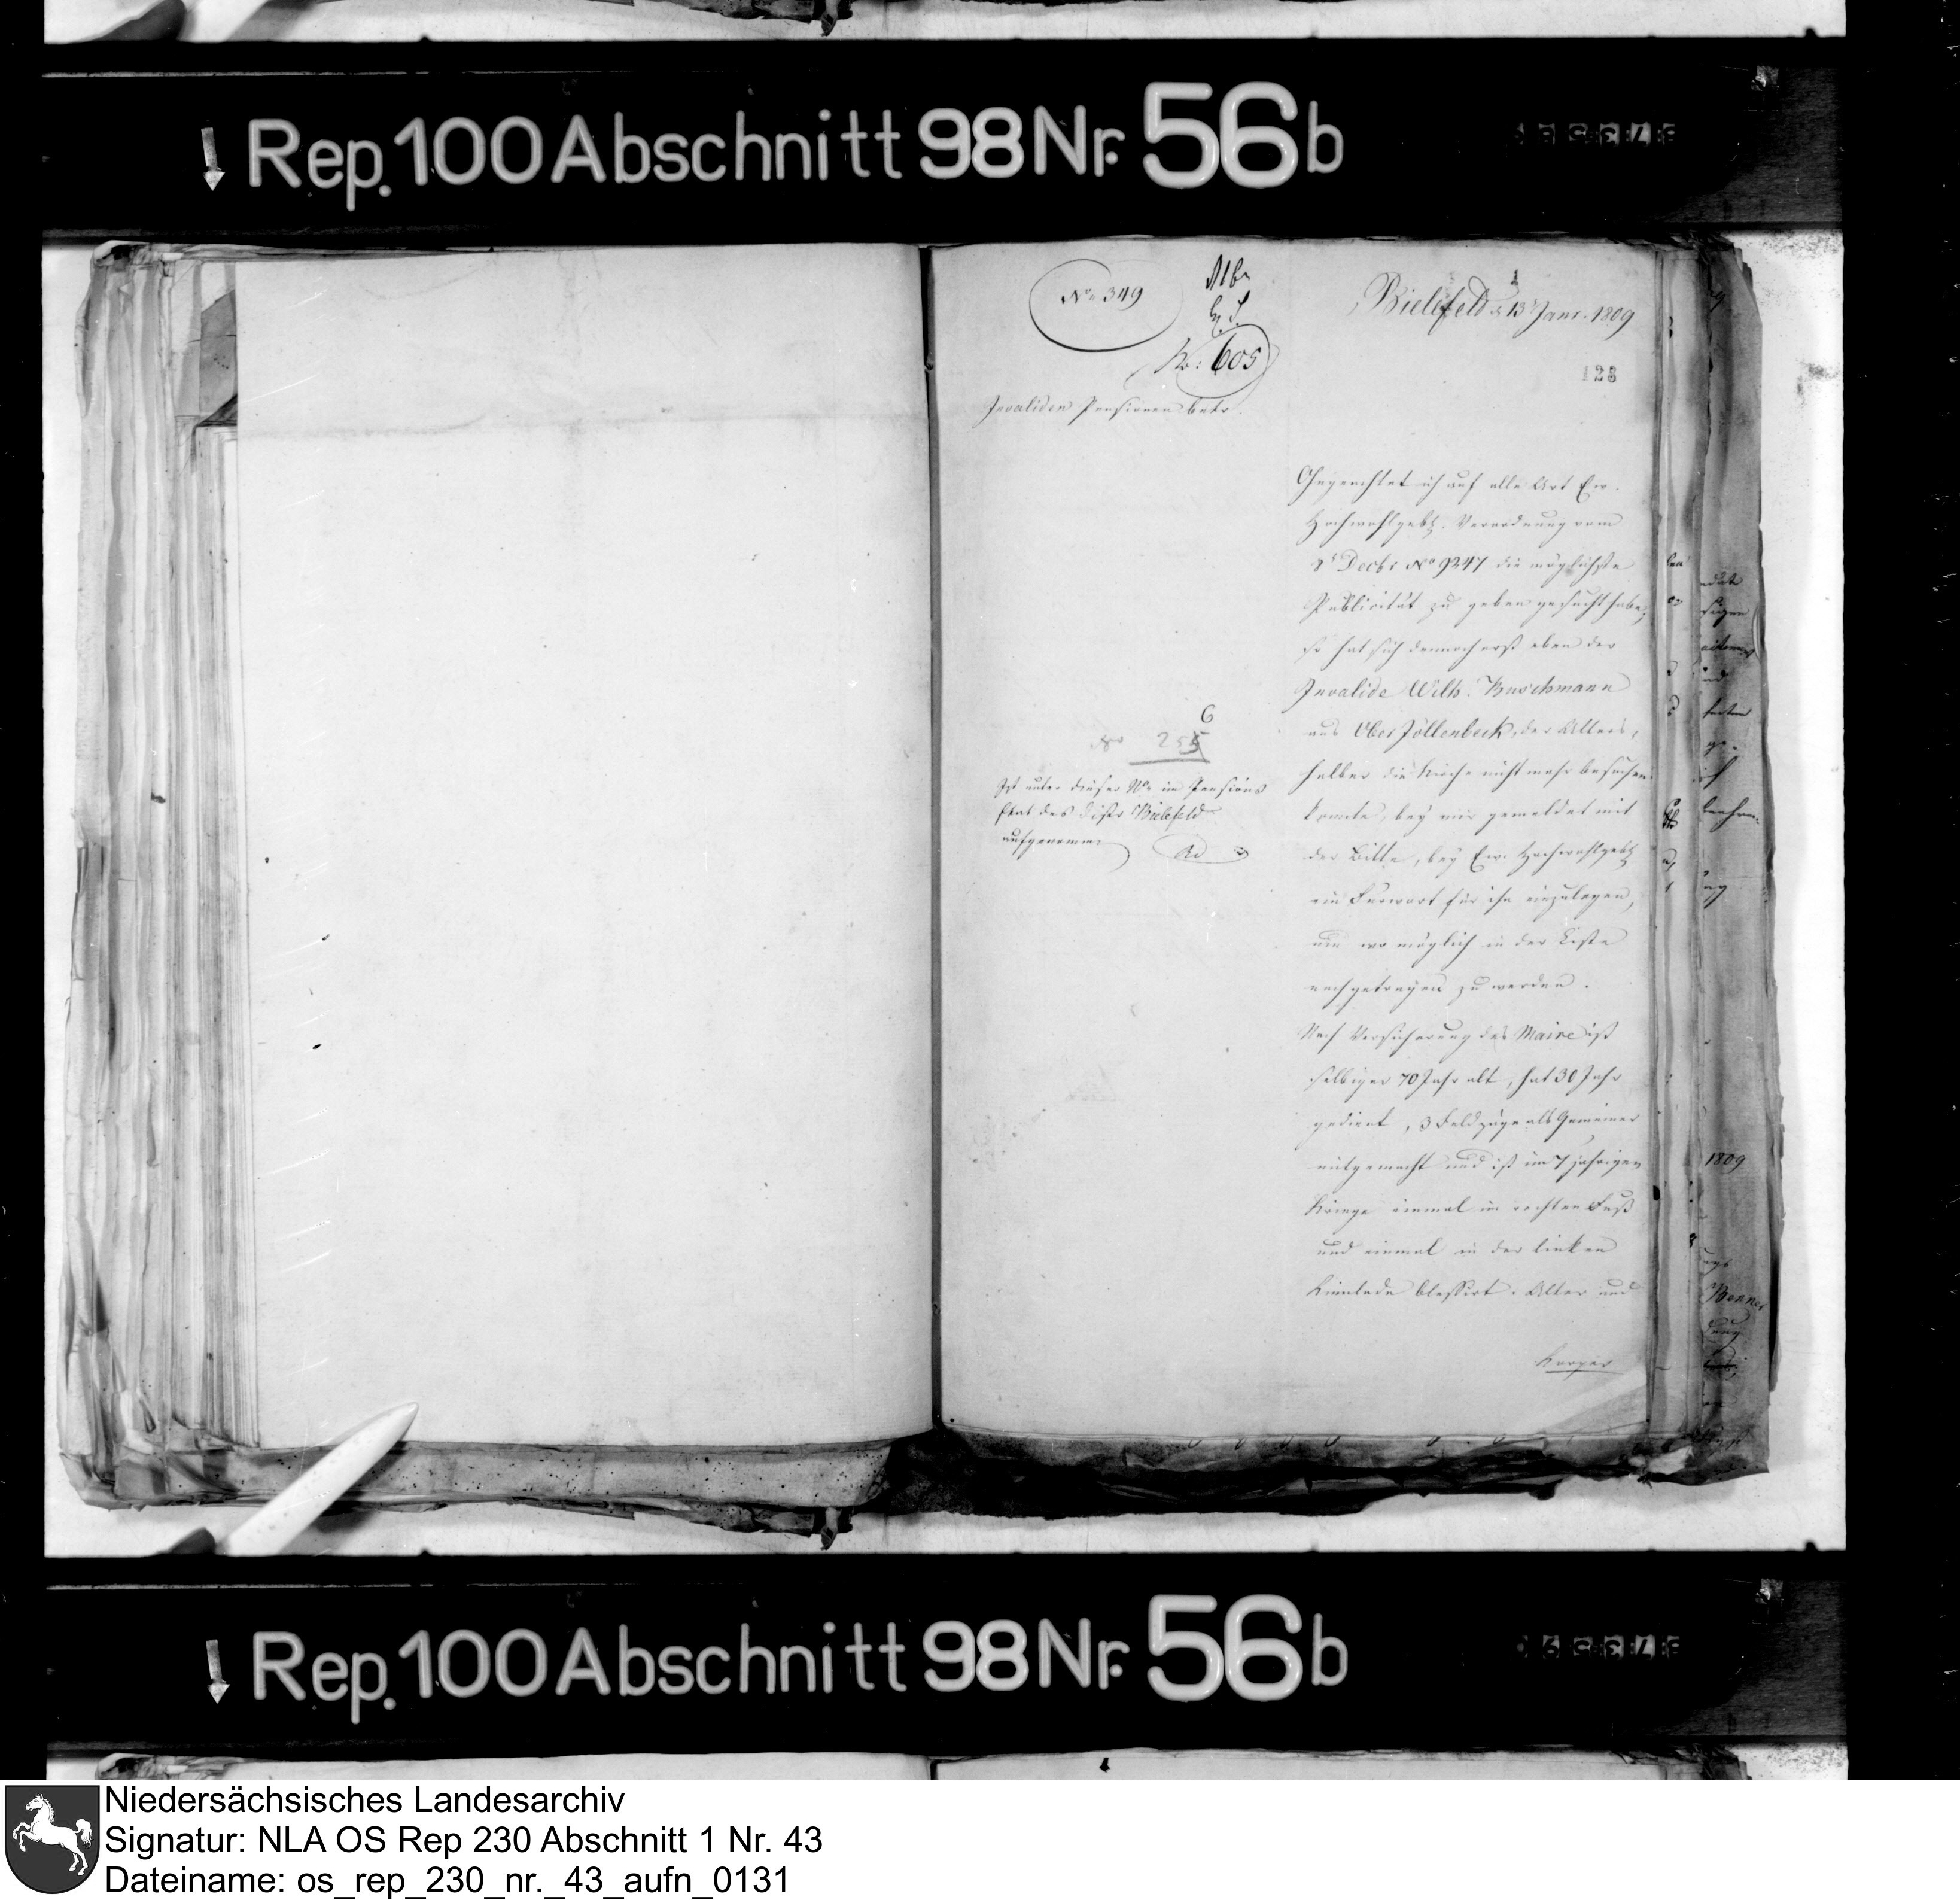 Rep. 100 Abschnitt 98 Nr. 56 b
No. 349
No: 605
Bielefeld d. 13t Janr. 1809
123
Invaliden Pensionen betr.
Ohngeachtet ich auf alle Art Ew.
Hochwohlgeb. Verordnung vom
8t Decbr No 9247 die möglichste
Publicität zu geben gesucht habe,
so hat sich dennoch erst eben der
Invalide Wilh. Buschmann
aus Ober Jöllenbeck, der Alters
halber die Kirche nicht mehr besuchen
konnte, bey mir gemeldet mit
der Bitte, bey Ew. Hochwohlgeb
ein Fürwort für ihn einzulegen,
um wo möglich in der Liste
nachgetragen zu werden.
Nach Versicherung des Maire ist
selbiger 70 Jahr alt, hat 30 Jahr
gedient, 3 Feldzüge als Gemeiner
mitgemacht und ist im 7 jährigen
Kriege einmal im rechten Fuß
und einmal in der linken
Kinnlade blessirt. Alter und
Körper
6
No 255
Ist unter dieser No im Pensions
Etat des Distr Bielefeld
aufgenommen
1809
Rep. 100 Abschnitt 98 Nr. 56 b
Niedersächsisches Landesarchiv
Signatur: NLA OS Rep 230 Abschnitt 1 Nr. 43
Dateiname: os_rep_230_nr._43_aufn_0131